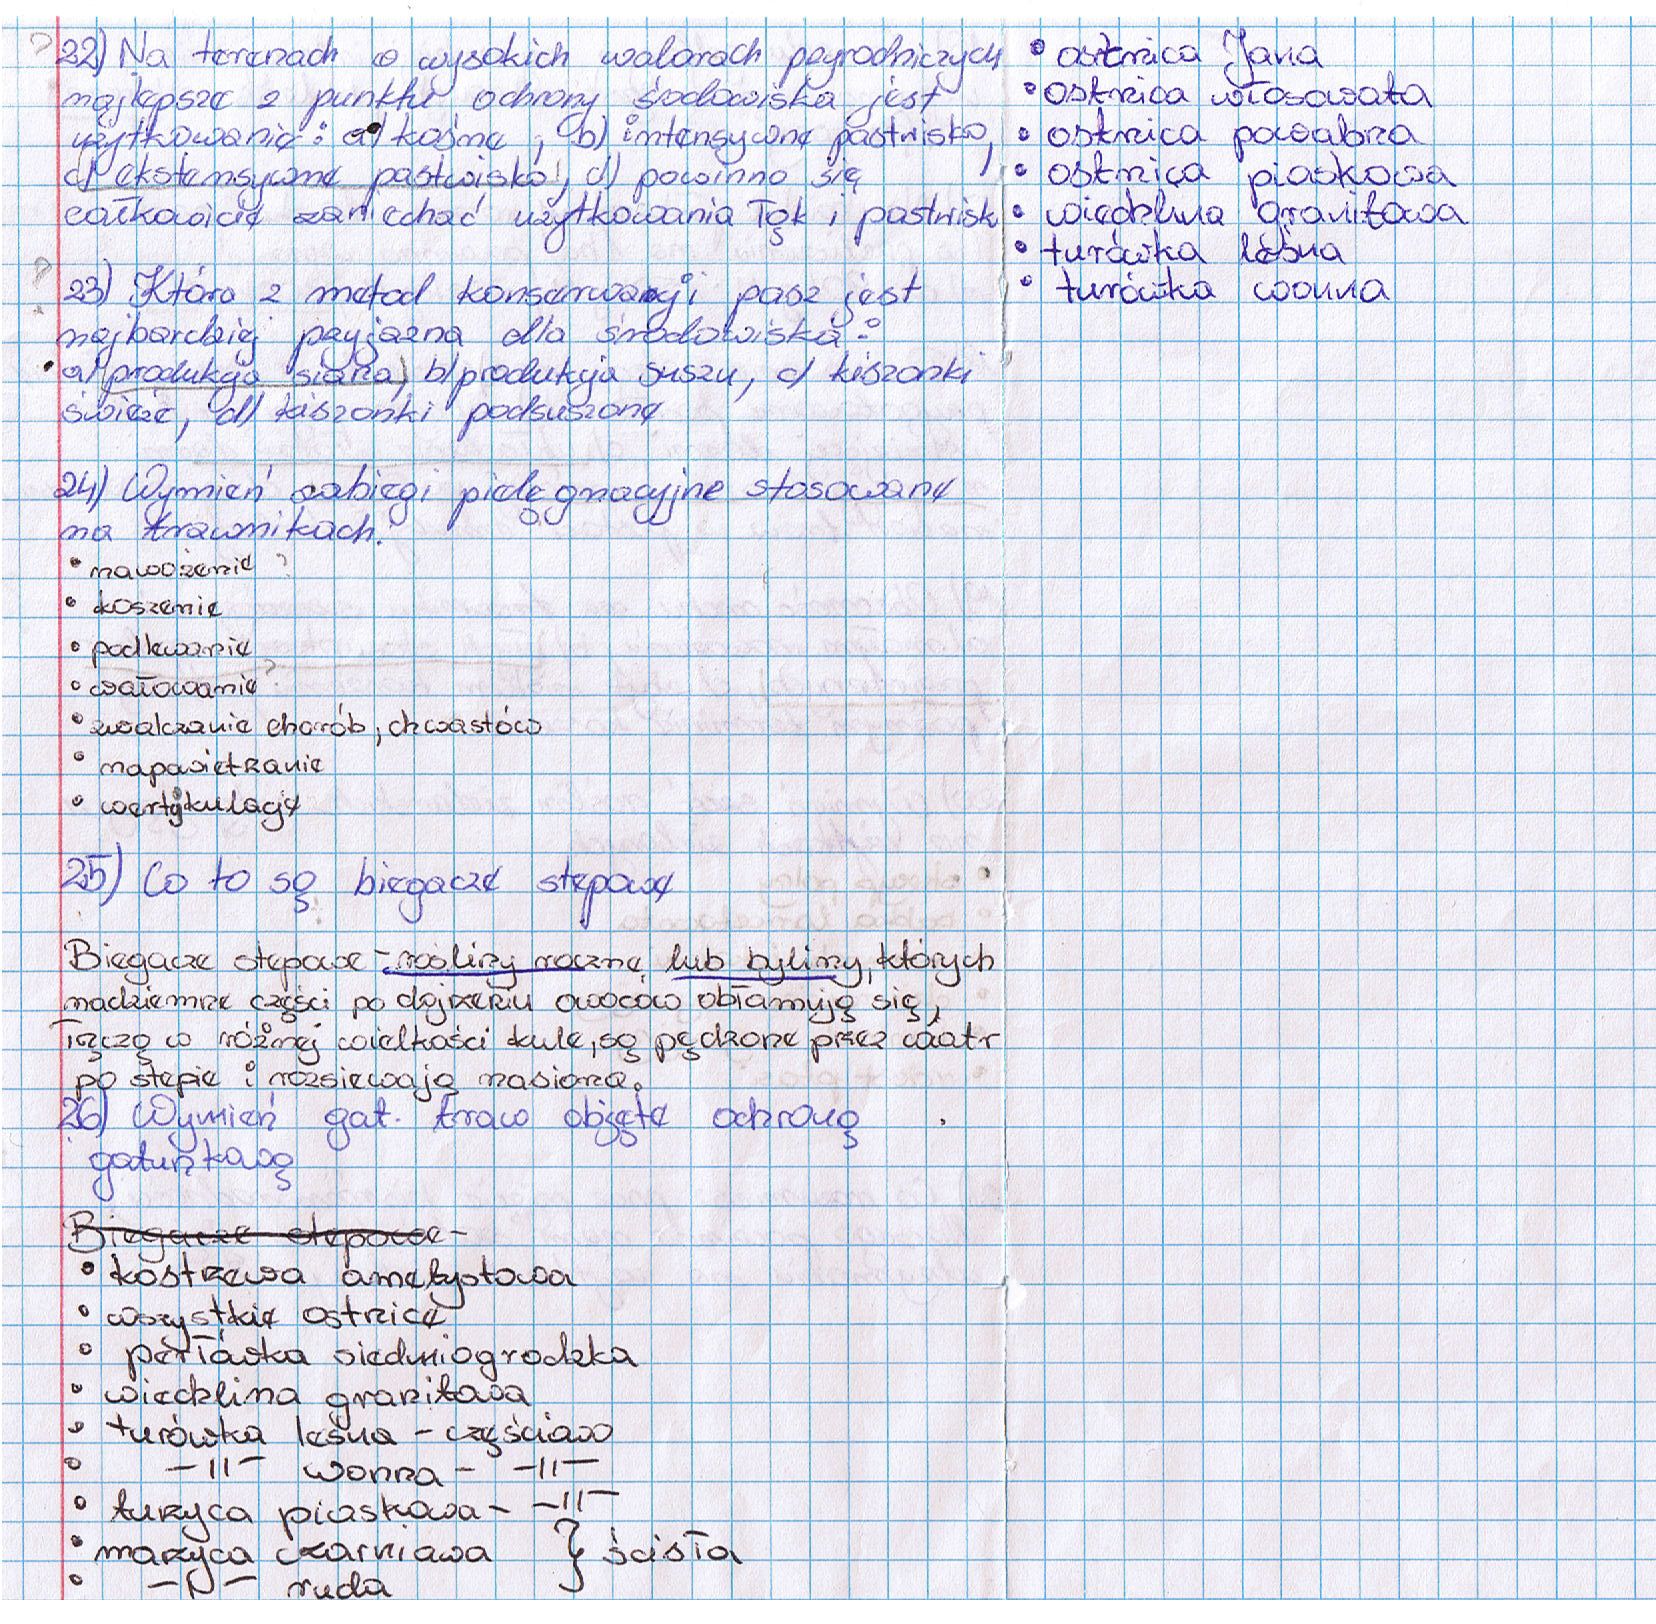 22) Na terenach o wysokich walorach przyrodniczych
najlepsze z punktu ochrony środowiska jest
użytkowanie: a) kośne, b) intensywne pastwisko,
c) ekstensywne pastwisko, d) powinno się
całkowicie zaniechać użytkowania łąk i pastwisk
23) Która z metod konserwacji pasz jest
najbardziej przyjazna dla środowiska:
a) produkcja siana, b) produkcja suszu, c) kiszonki
świeże, d) kiszonki podsuszone
24) Wymień zabiegi pielęgnacyjne stosowane
na trawnikach.
• nawożenie ?
• koszenie
• podlewanie
• wałowanie ?
• zwalczanie chorób, chwastów
• napowietrzanie
• wertykulację
25) Co to są biegacze stepowe
Biegacze stepowe - rośliny roczne lub byliny, których
nadziemne części po dojrzeniu owoców obłamują się,
łączą w różnej wielkości kule, są pędzone przez wiatr
po stepie i rozsiewają nasiona.
26) Wymień gat. traw objęte ochroną
gatunkową
Biegacze stepowe -
• kostrzewa ametystowa
• wszystkie ostnice
• perłówka siedmiogrodzka
• wiechlina granitowa
• turówka leśna - częściowo
• -||- wonna - -||-
• turzyca piaskowa - -||-
• marzyca czarniawa } ścisła
• -||- ruda
• ostnica Jana
• ostnica włosowata
• ostnica powabna
• ostnica piaskowa
• wiechlina granitowa
• turówka leśna
• turówka wonna